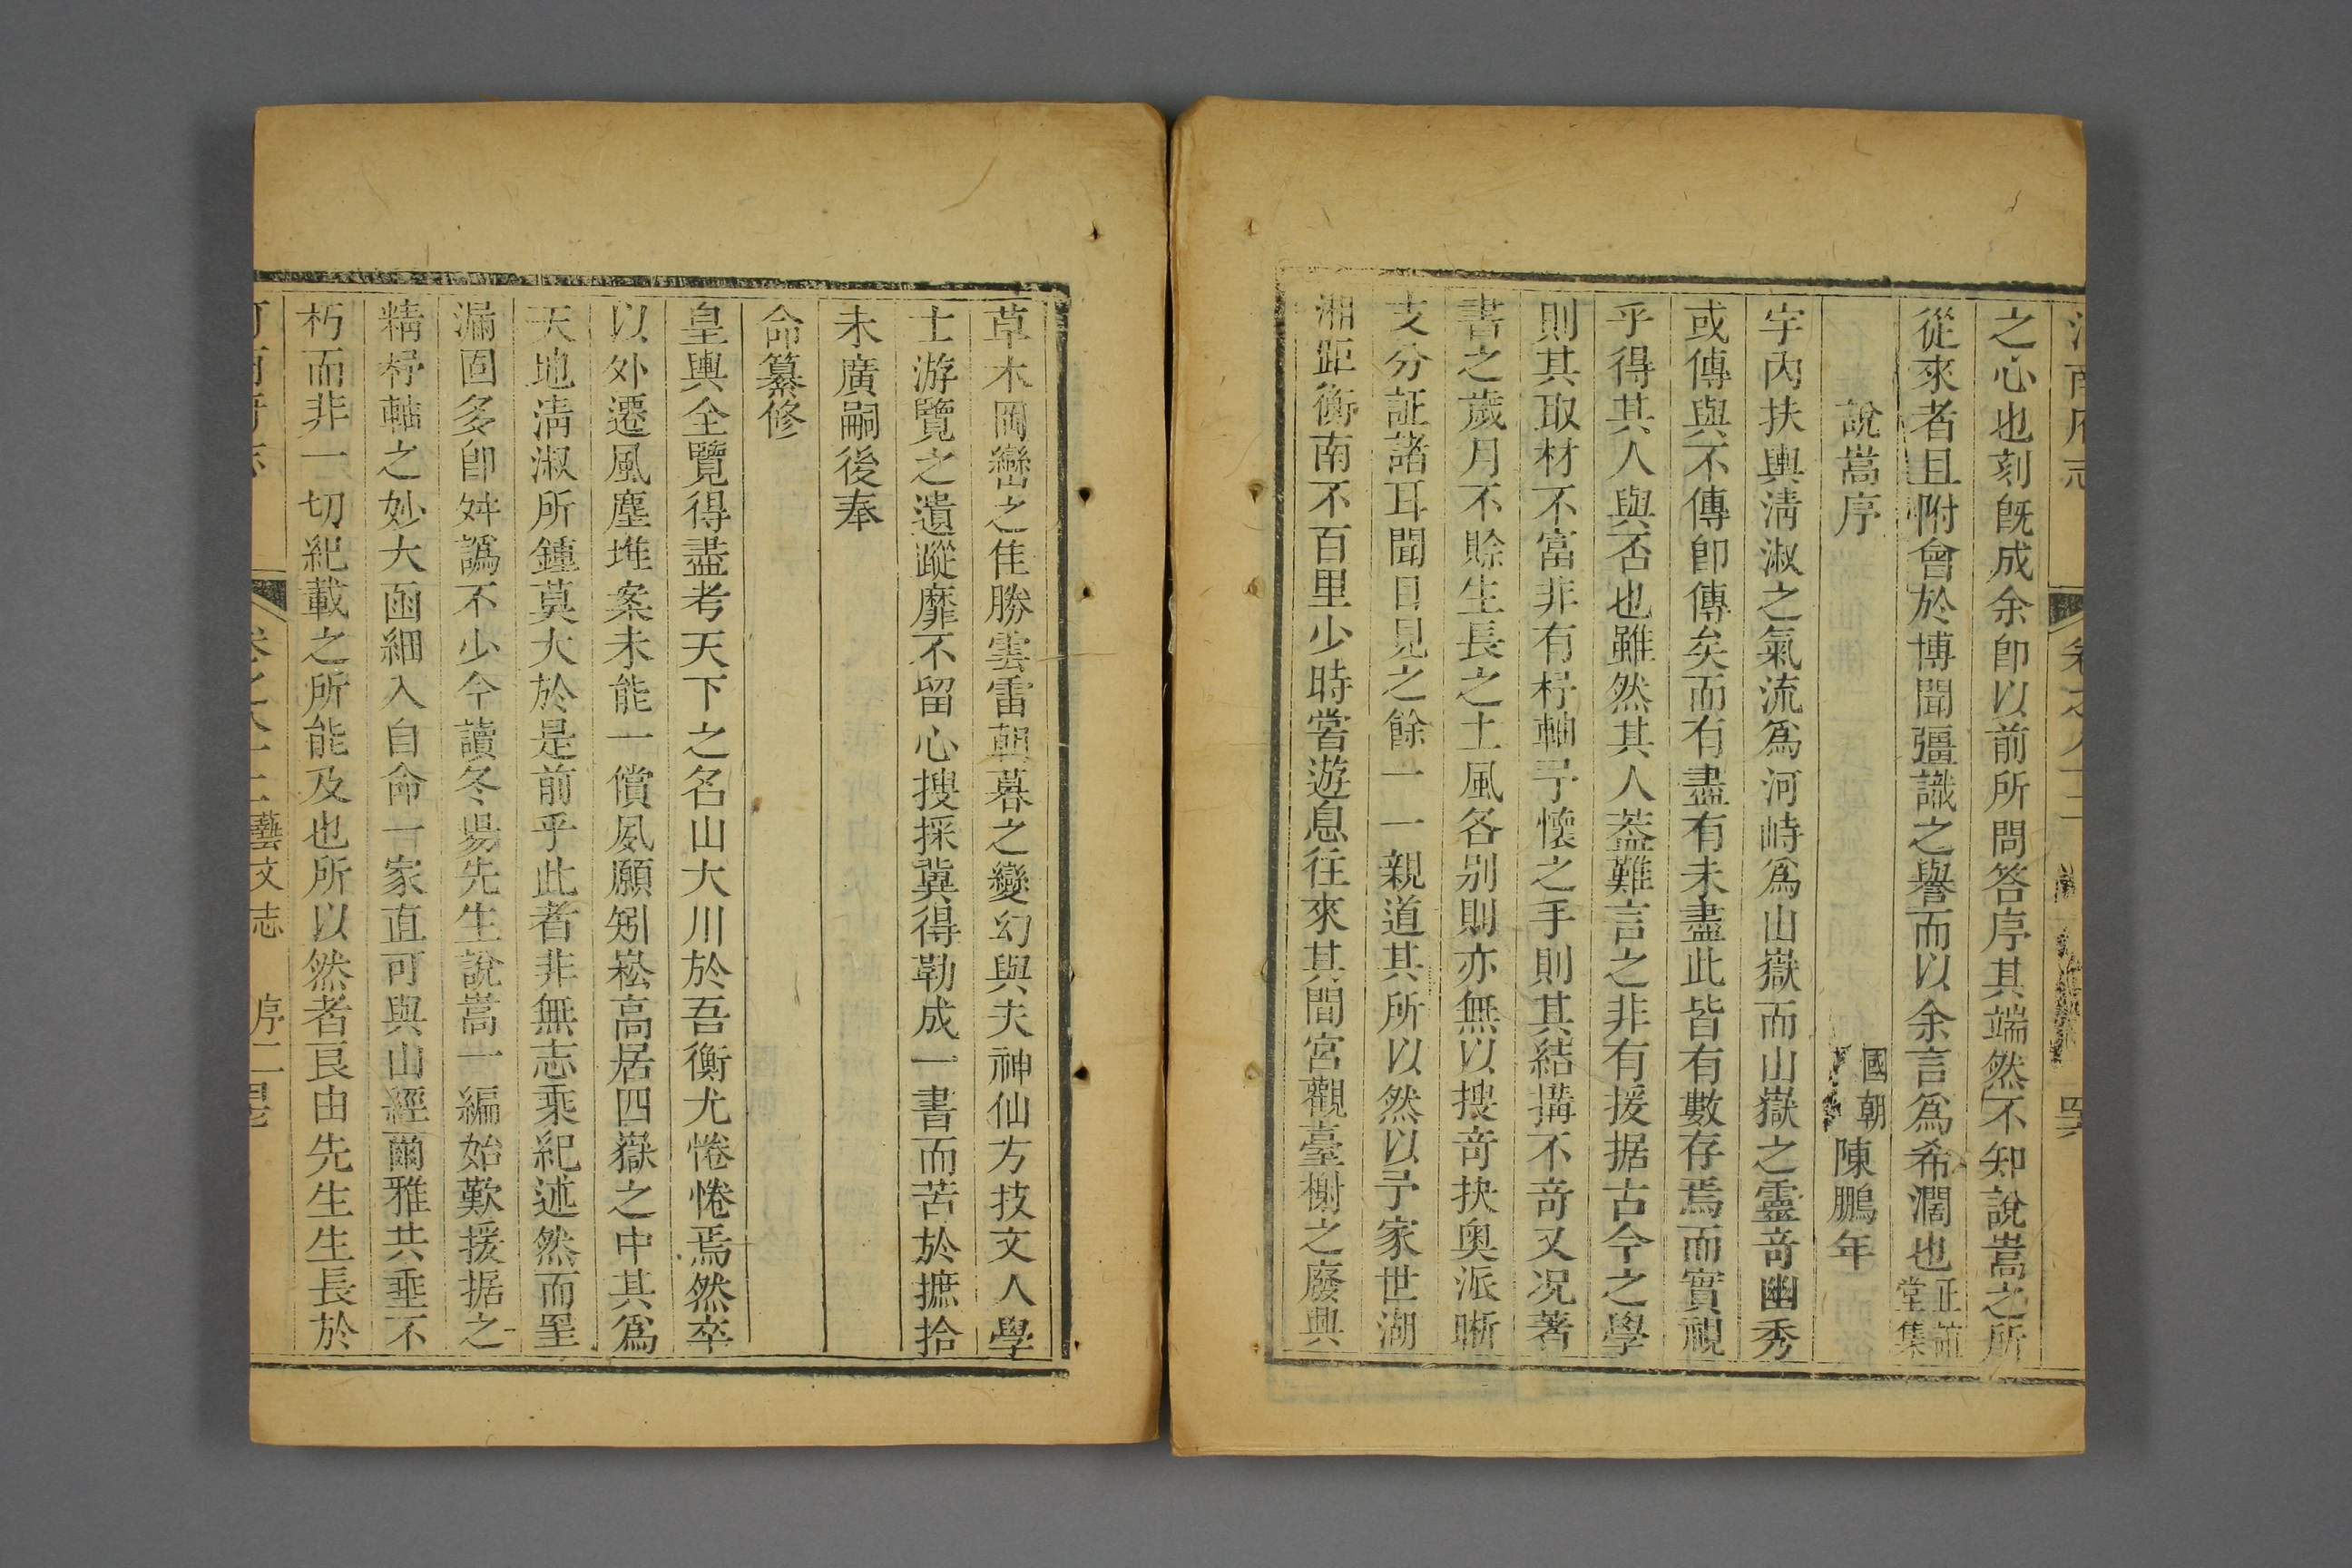 之心也刻旣成余卽以前所問答序其端然不知說嵩之所
從來者且附會於博聞彊識之譽而以余言爲希濶也 堂集
說嵩序
國朝陳鵬年
宇內扶輿淸淑之氣流爲河峙爲山嶽而山嶽之靈竒幽秀
或傳與不傳卽傳矣而有盡有未盡此皆有數存焉而實視
乎得其人與否也雖然其人葢難言之非有援据古今之學
則其取材不富非有杼軸予懷之手則其結搆不竒又况著
書之歲月不賒生長之土風各别則亦無以搜竒抉奥派晣
支分証諸耳聞目見之餘一一親道其所以然以予家世湖
湘距衡南不百里少時嘗遊息往來其間宮觀臺榭之廢興
草木岡巒之佳勝雲雷朝暮之變幻與夫神仙方技文人學
士游覽之遺蹤靡不留心搜採冀得勒成一書而苦於摭拾
未廣嗣後奉
命纂修
皇輿全覽得盡考天下之名山大川於吾衡尤惓惓焉然卒
以外遷風塵堆案未能一償夙願矧崧高居四嶽之中其爲
天地淸淑所鍾莫大於是前乎此者非無志乘紀述然而罣
漏固多卽舛譌不少今讀冬昜先生說嵩一編始歎援据之
精杼軸之妙大函細入自命一家直可與山經爾雅共垂不
朽而非一切紀載之所能及也所以然者良由先生生長於
藝文志 序二